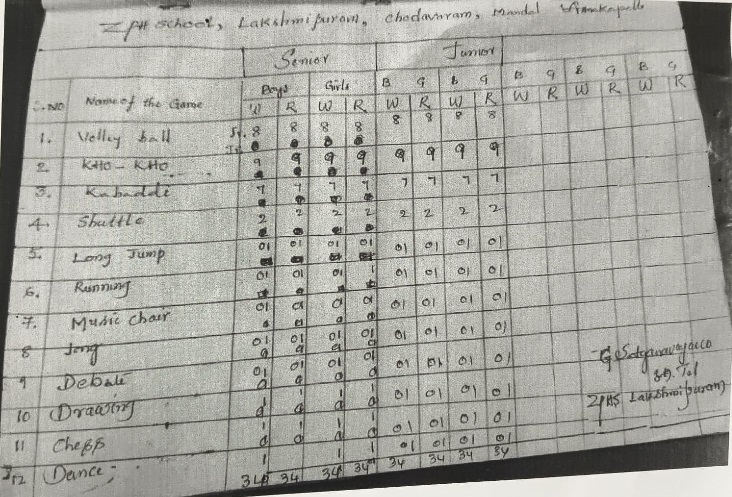 ZPH School, Lakshmipuram, Chodavaram, Mandal Anakapalli
Senior Junior
Boys Girls B G B G B G B G B G
S.NO Name of the Game W R W R W R W R W R W R W R
1. Volley ball Sr. 8 8 8 8 8 8 8 8
2 KHO - KHO 9 9 9 9 9 9 9 9
3. Kabaddi 7 7 7 7 7 7 7 7
4. Shuttle 2 2 2 2 2 2 2 2
5. Long Jump 01 01 01 01 01 01 01 01
6. Running 01 01 01 1 01 01 01 01
7. Music chair 01 01 01 01 01 01 01 01
8 Song 01 01 01 01 01 01 01 01
9 Debate 01 01 01 01 01 01 01 01
10 Drawing 1 1 1 1 01 01 01 01
11 Chess 1 1 1 1 01 01 01 01
12 Dance 1 1 1 1 01 01 01 01
34 34 34 34 34 34 34 34
ZPHS Lakshmipuram